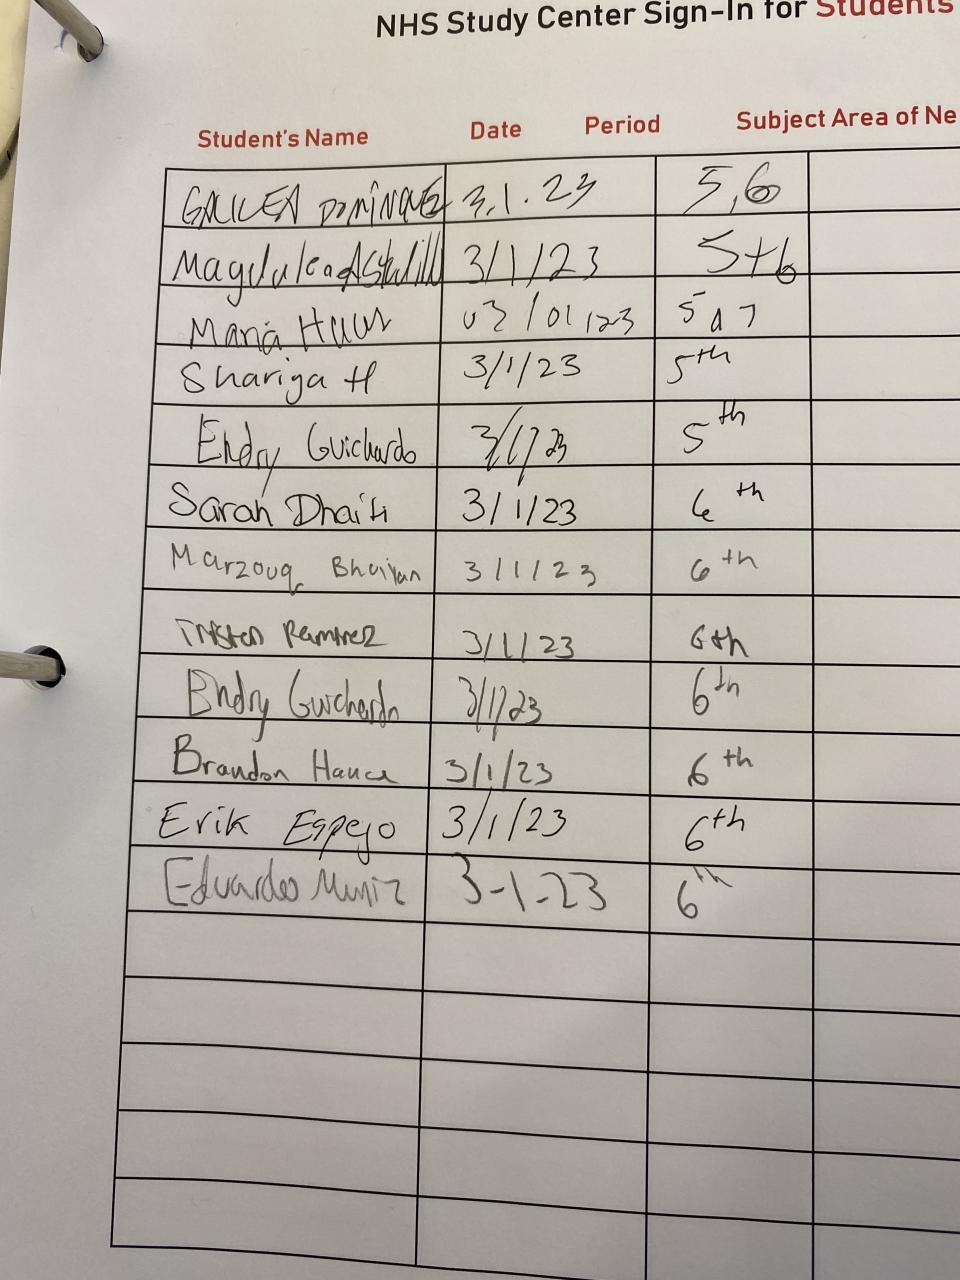 NHS Study Center Sign-In for Students
Student's Name Date Period Subject Area of Ne
GALILEA DOMINGUEZ 3.1.23 5,6
3/1/23 5+6
Maria 03/01/23 5 a 7
Shariqa H 3/1/23 5th
Endry Guichardo 3/1/23 5th
Sarah Dhaiti 3/1/23 6th
Marzouq Bhuiyan 3/1/23 6th
Tristen Ramirez 3/1/23 6th
Endry Guichardo 3/1/23 6th
Brandon 3/1/23 6th
Erik Espejo 3/1/23 6th
Eduardo Muniz 3-1-23 6th